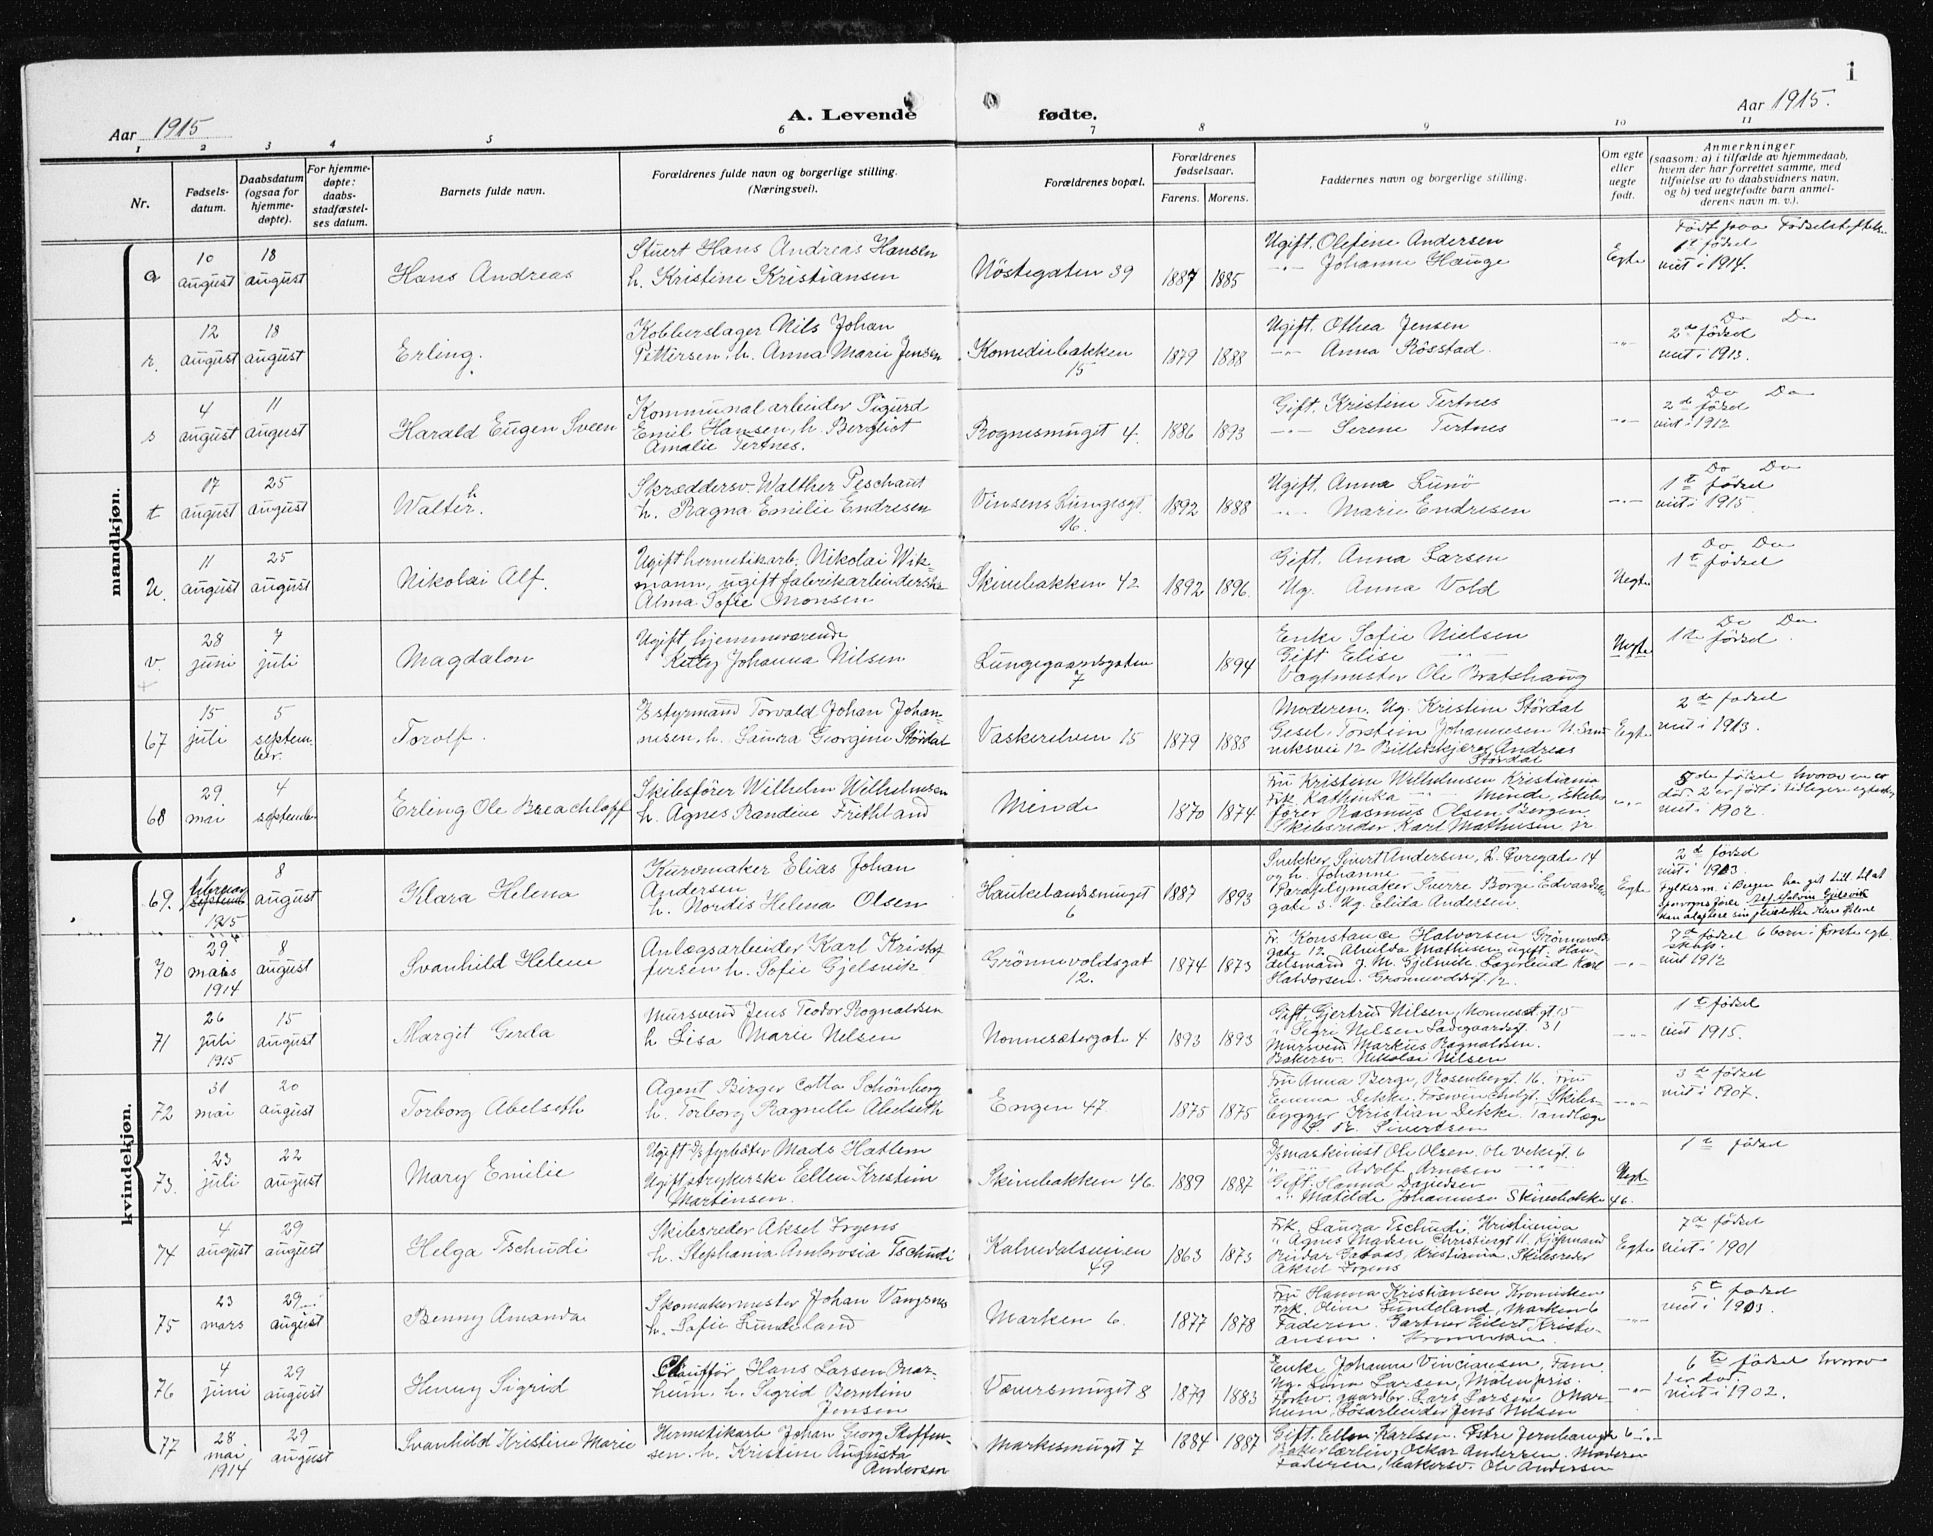 1
Aar 1915
A. Levende fødte.
Aar 1915.
1 2 3 4 5 6 7 8 9 10 11
Nr.
Fødsels-
datum.
Daabsdatum
(ogsaa for
hjemme-
døpte).
For hjemme-
døpte:
daabs-
stadfæstel-
ses datum.
Barnets fulde navn.
Forældrenes fulde navn og borgerlige stilling.
(Næringsvei).
Forældrenes bopæl.
Forældrenes
fødselsaar.
Farens. Morens.
Faddernes navn og borgerlige stilling.
Om egte
eller
uegte
født.
Anmerkninger
(saasom: a) i tilfælde av hjemmedaab,
hvem der har forrettet samme, med
tilføielse av to daabsvidners navn,
og b) ved uegtefødte barn anmel-
derens navn m. v.).
mandkjøn.
q
10
august
18
august
Hans Andreas
Stuert Hans Andreas Hansen
h. Kristine Kristiansen
Nöstegaten 39
1887 1885
Ugift. Olefine Andersen
-"- Johanne Hauge
Egte
Født paa Fødselsstiftels.
1te födsel
viet i 1914.
r.
12
august
18
august
Erling.
Kobberslager Nils Johan
Pettersen, h. Anna Marie Jensen
Komediebakken
15
1879 1888
Ugift. Othea Jensen
-"- Anna Rösstad.
-"-
Do Do
2de födsel
viet i 1913.
s
4
august
11
august
Harald Eugen Sveen
Kommunalarbeider Sigurd
Emil Hansen, h. Bergliot
Amalie Tertnes.
Rognesmuget 4.
1886 1893
Gift. Kristine Tertnes
-"- Serene Tertnes
-"-
Do Do
2de födsel
viet i 1912
t
17
august
25
august
Walther.
Skræddersv. Walther Peschaut
h. Ragna Emilie Endresen
Vinsens Lungesgt.
16.
1892 1888
Ugift. Anna Lunö
-"- Marie Endresen
-"-
Do Do
1te födsel
viet i 1915
u.
11
august
25
august
Nikolai Alf.
Ugift hermetikarb. Nikolai Wik-
mann, ugift fabrikarbeiderske
Alma Sofie Monsen
Skivebakken 42
1892 1896.
Gift. Anna Larsen
Ug. Anna Vold
Uegte
Do Do
1te födsel
v.
28
juni
7
juli
Magdalon
Ugift hjemmeværende
Ketty Johanna Nilsen
Lungegaardsgaten
7
1894
Enke Sofie Nielsen
Gift Elise -"-
Vagtmester Ole Bratshaug
Uegte
Do Do
1te födsel
67
15
juli
5
septem-
ber.
Torolf.
D/S styrmand Torvald Johan Johan-
nesen, h. Laura Georgine Stördal
Vaskerelven 15
1879 1888
Moderen. Ug. Kristine Stördal
Gesel. Torstein Johannesen N. Sand-
viksvei 12 Billedskjærer Andreas
Stördal
Egte
2de födsel
viet i 1913.
68
29
mai
4
september
Erling Ole Breachloff
Skibsförer Wilhelm Wilhelmsen
h. Agnes Randine Frithland
Minde
1870 1874
Fru Kristine Wilhelmsen Kristiania
Frk. Kathinka -"- Minde, Skibs-
förer Rasmus Olsen Bergen
Skibsreder Karl Mathisen jr
-"-
5de födsel hvorav en er
död. 2 er født i tidligere egteskap
viet i 1902.
kvindekjøn.
69.
1
februar
1915
8
august
Klara Helena
Kurvmaker Elias Johan
Andersen
h. Nordis Helena Olsen
Haukelandsmuget
6
1887 1893
Snekker Sivert Andersen, L. Övregate 14
og h. Johanne -"-
Paraplymaker Sverre Borge Edvardsens
gate 3. Ug. Elida Andersen.
Egte
2de födsel
viet i 1913
70
29
mars
1914
8
august
Svanhild Helene
Anlægsarbeider Karl Kristof-
fersen h. Sofie Gjelsvik
Grönnevoldsgat
12.
1874 1873
Fr. Konstance Halvorsen Grönnevolds-
gate 12 Alvilda Mathisen ugift. Han-
delsmand J. M. Gjelsvik. Lagerbud Karl
Halvorsen. Grönnevoldsgt. 12.
-"-
7de födsel 6 born i förste egte-
skap.
viet 1912
71
26
juli
1915
15
august
Margit Gerda
Mursvend Jens Teodor Rognaldsen
h Lisa Marie Nilsen
Nonnesætergate 4
1893 1893
Gift. Gjertrud Nilsen, Nonnesætgt 15
" Sigri Nilsen Ladegaardsgt. 31
Mursvend Markus Ragnaldsen.
Bakersv. Nikolai Nilsen
-"-
1te födsel
viet 1915.
72
31
mai
20
august
Torborg Abelseth
Agent Birger Cotta Schönberg
h. Torborg Ragnelle Abelseth
Engen 47.
1875 1875
Fru Anna Berge, Rosenbergt. 16. Fru
Emma Dekke. Foswinckelgt. Skibs-
bygger Kristian Dekke. Tandlæge
Sivertsen
-"-
3de födsel
viet i 1907.
73.
23
juli
22
august
Mary Emilie
Ugift D/S fyrböter Mads Hatlem
Ugift strykerske Ellen Kristine
Martinsen.
Skivebakken 46.
1889 1887
D/S maskinist Ole Olsen. Ole Veksgt. 6
" -"- Adolf Arnesen -"-
Gift. Hanna Davidsen
" Matilde Johannesen Skivebakke 46.
Uegte
1te födsel
74
4
august
29
august
Helga Tschudi
Skibsreder Aksel Irgens
h. Stephania Ambrosia Tschudi
Kalvedalsveien
49
1863 1873
Frk. Laura Tschudi Kristiania
" Agnes Madsen Christiesgt 11. Kjöpmand
Reidar Kristiania. Skibsreder
Aksel Irgens
Egte
7de födsel
viet i 1901
75
23
mars
29
august
Benny Amanda
Skomakermester Johan Vangsnes
h. Sofie Lundeland
Marken 6.
1877 1878
Fru Hanna Kristiansen Kronviken
Frk. Oline Lundeland, Marken 6
Faderen. Gartner Eilert Kristi-
ansen. Kronviken
-"-
5te födsel
viet i 1903.
76
4
juni
29
august
Henny Sigrid
Chauffør Hans Larsen Mar-
heim, h. Sigrid Berntine
Jensen
Væversmuget 8
1879 1883
Enke Johanna Vinciansen, Fam.
Ug. Lina Larsen, Målenpris.
Forhv. gaardbr. Lars Larsen Mar-
heim, Løsarbeider Jens Nilsen
-"-
6te födsel hvorav
1 er död.
viet i 1902.
77
28
mai
1914
29
august
Svanhild Kristine Marie
Hermetikarb. Johan Georg Steffen-
sen. h. Kristine Augusta
Andersen
Markesmuget 7
1884 1887
Gift. Ellen Karlsen. Östre Jernbanegt 6
Bakerlærling Oskar Andersen. Moderen
Faderen, bakersv. Ole Andersen
-"-